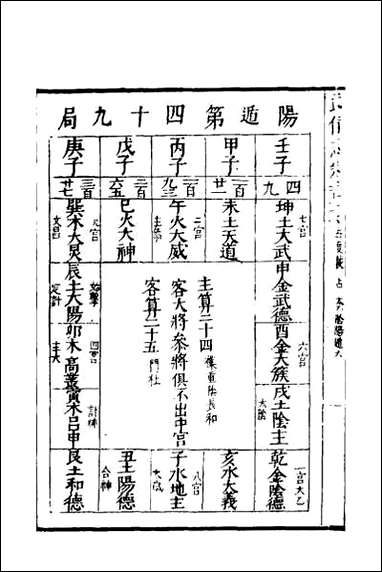 陽遁第四十九局
壬子
四九
甲子
丙子
戊子
二百
六五
庚子
三百
七宮
坤土大武
申金武德
六宮
酉金大簇
戌土陰主
大陰
一宮大乙
乾金陰德
未土天道
亥水大義
二宮
午火大威
主擊
主算三十四
客大將參將俱不出中宮
客算二十五 門杜
八宮
子水地主
大歲
巳火大神
丑土陽德
合神
九宮
巽木大炅
文昌
始擊
辰土大陽
定計
四宮
卯木高叢
主大
計神
寅木呂申
艮土和德